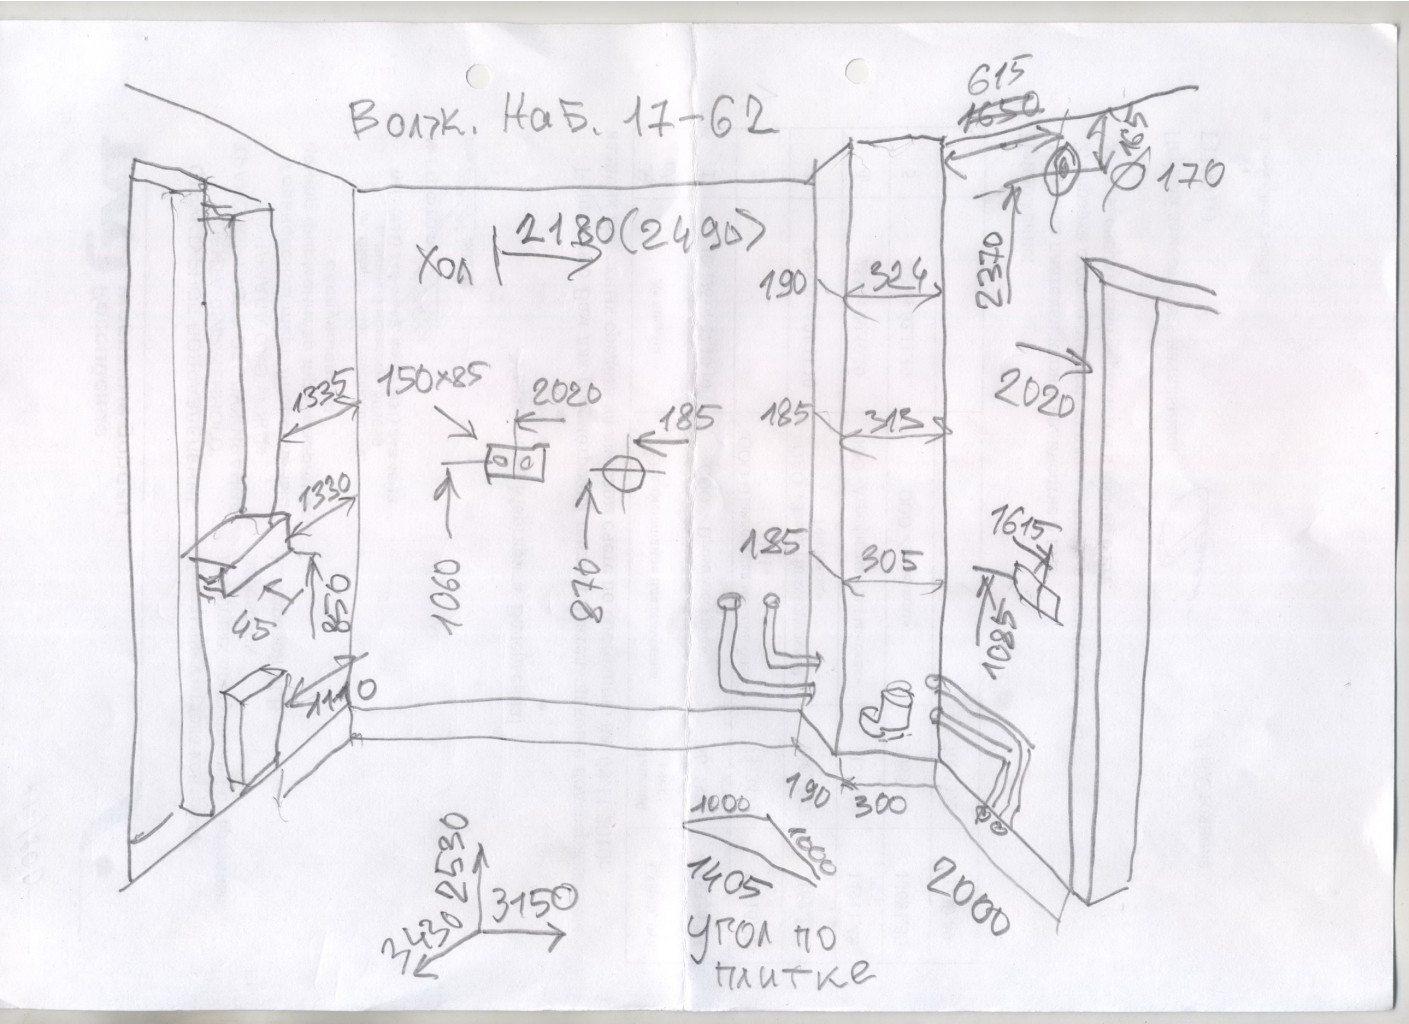 Волж. Наб. 17-62
615
1650
165
170
2180(2490)
Хол
2370
190
324
2020
1335
150x85
2020
185
185
313
1330
1615
185
305
45
850
1060
870
1085
1110
190
300
1000
1000
1405
2000
2530
3150
3430
угол по
плитке